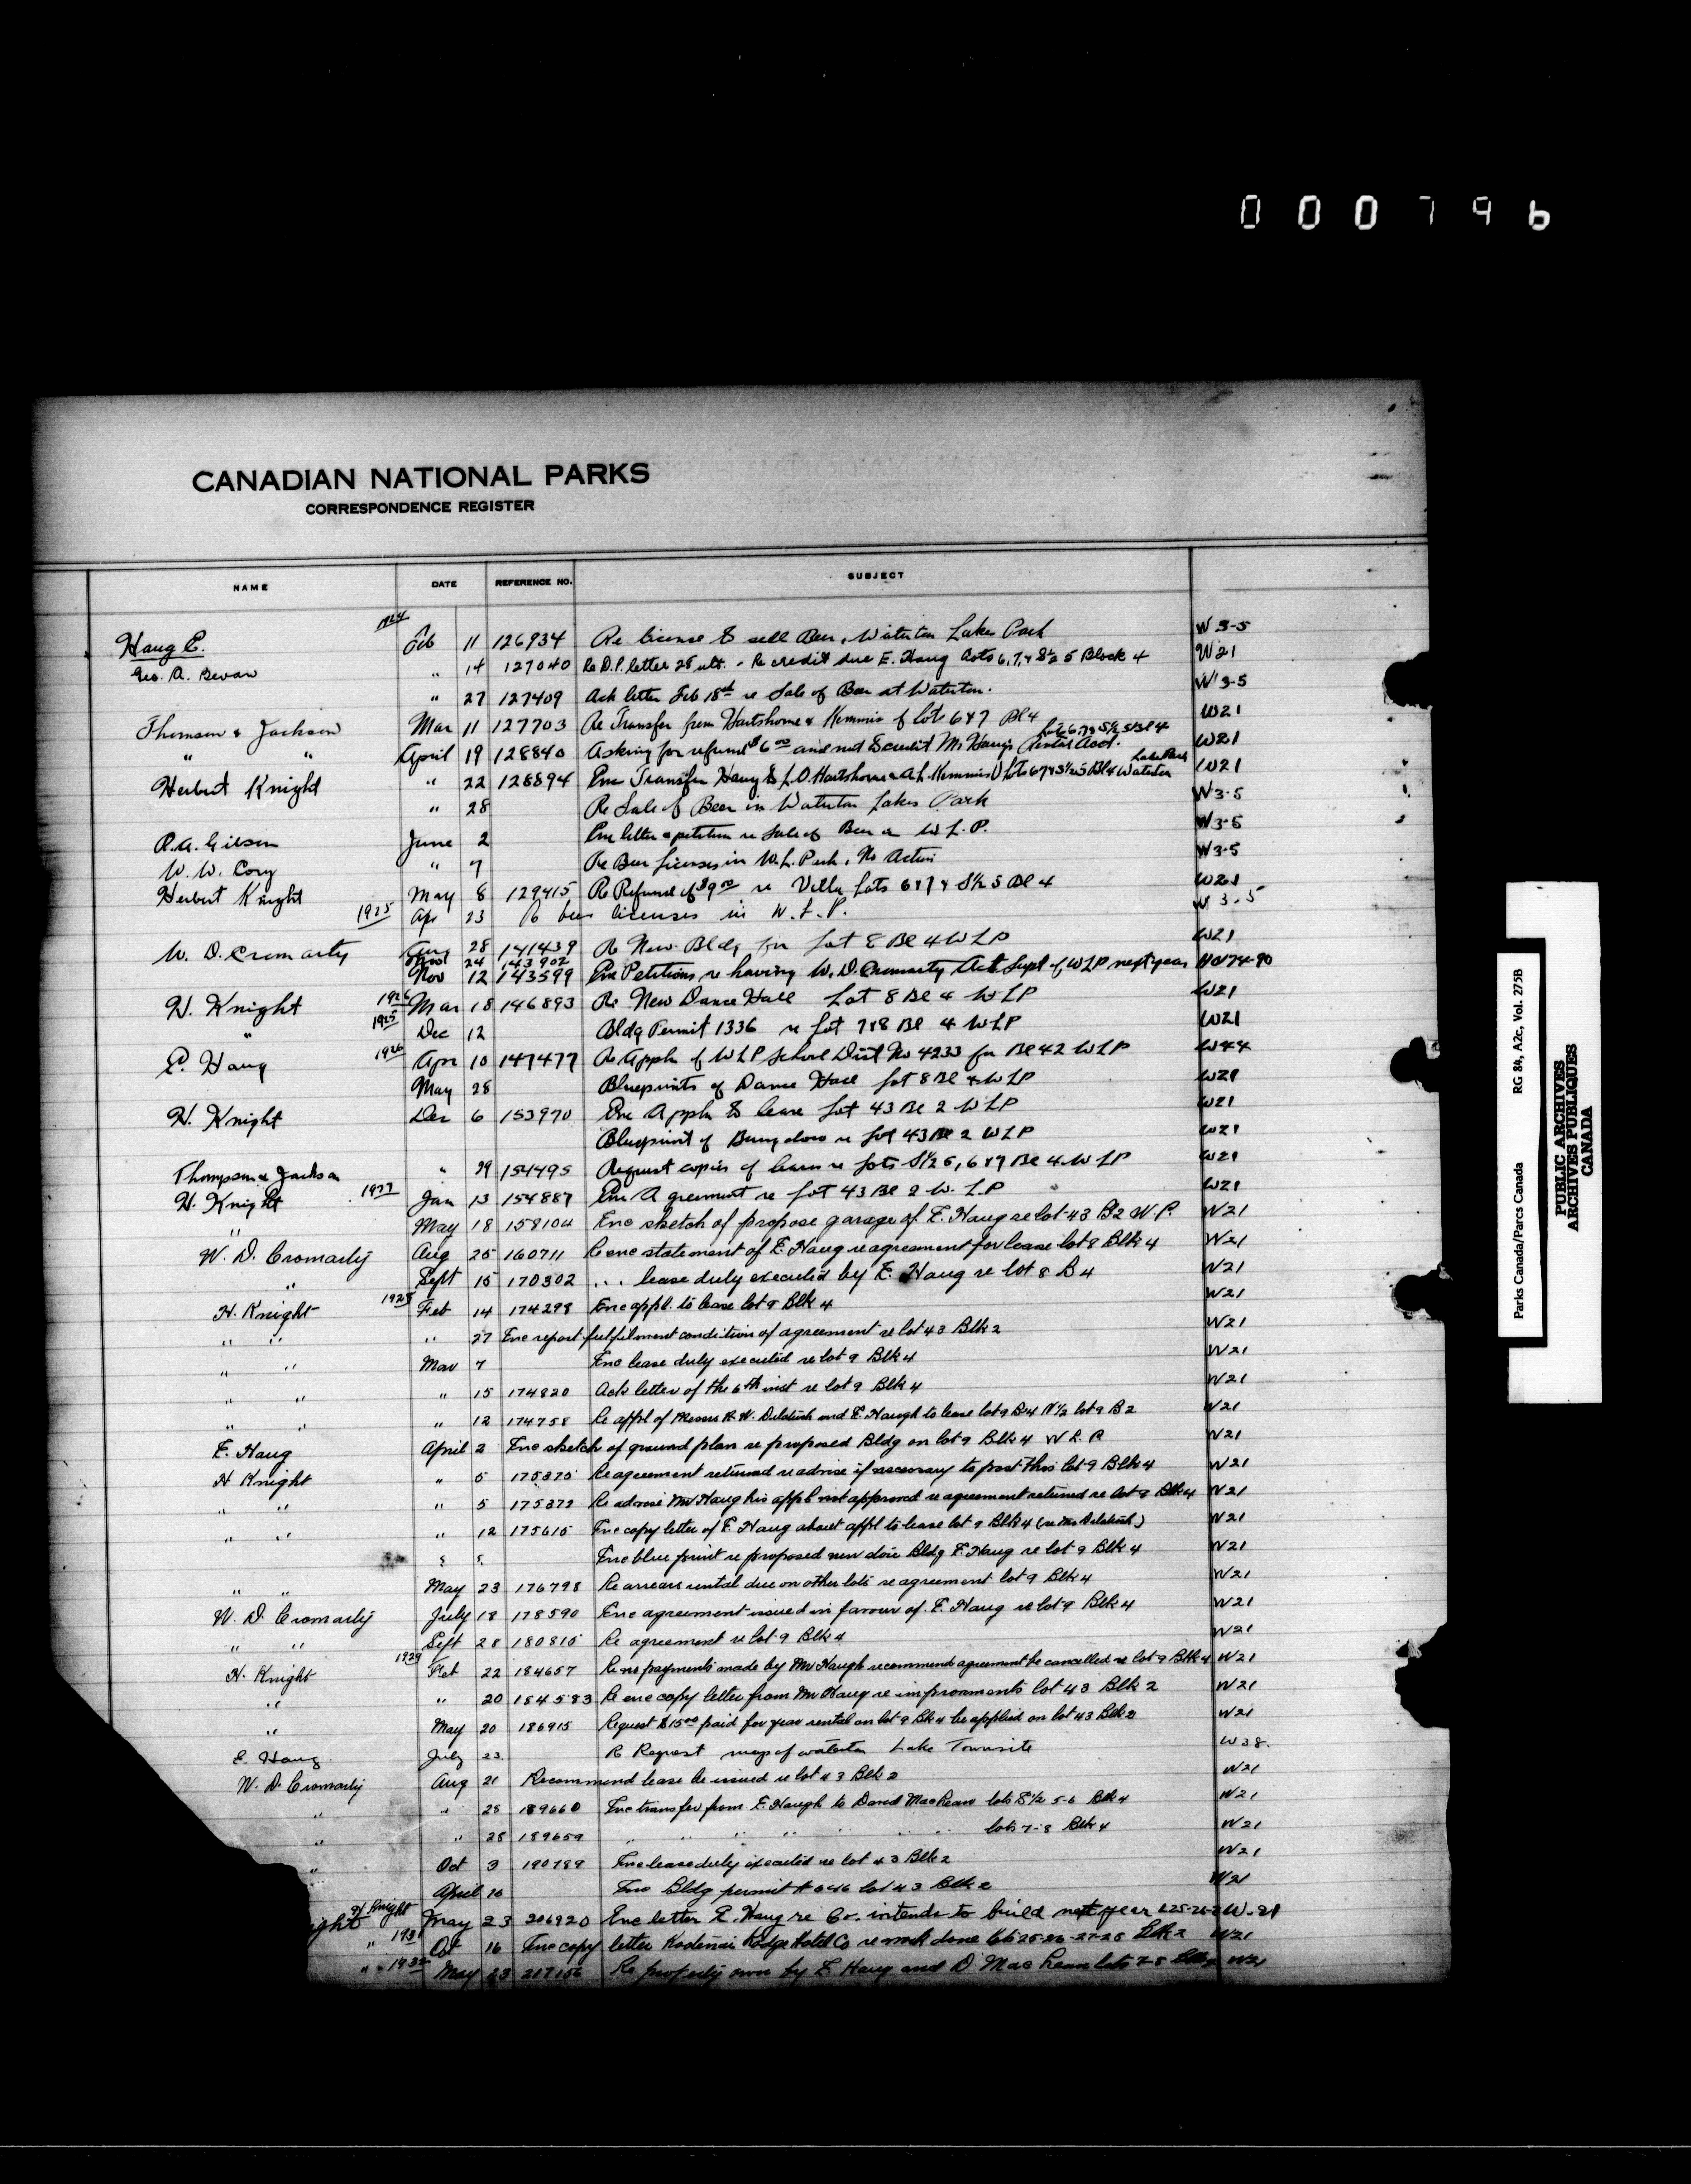 000796
CANADIAN NATIONAL PARKS
CORRESPONDENCE REGISTER
NAME DATE REFERENCE NO. SUBJECT
1924
Haug E. Feb 11 126934 Re license to sell Beer, Waterton Lakes Park W3-5
Geo. A. Bevan " 14 127040 Re D.P. letter 25 ult. - Re credit due E. Haug Lots 6, 7, & S½ 5 Block 4 W21
" 27 127409 Ack letter Feb 18th re Sale of Beer at Waterton. W3-5
Thomson & Jackson Mar 11 127703 Re Transfer from Hartshorne & Kemmis of lots 6&7 Bl 4 W21
" " April 19 128840 Asking for refund $6.00 and not to credit Mr Haug's Rental Acct. Lots 6,7 & S½ 5 Bl 4 W21
Herbert Knight " 22 128894 Enc Transfer Haug to L.O. Hartshorne & A.L. Kemmis Lots 6 7 & S½ 5 Bl 4 Waterton Lakes Park W21
" 28 Re Sale of Beer in Waterton Lakes Park W3-5
R.A. Gibson June 2 Enc letter & petition re Sale of Beer in W.L.P. W3-5
W. W. Cory " 7 Re Beer Licenses in W.L. Park, No Action W3-5
Herbert Knight May 8 129415 Re Refund of $9.00 re Villa Lots 6 & 7 & S½ 5 Bl 4 W21
1925 Apr 23 Re beer licenses in W.L.P. W3-5
W. D. Cromarty Aug 28 141439 Re New Bldg for Lot 8 Bl 4 WLP W21
24 143902
Nov 12 143599 Enc Petitions re having W. D. Cromarty Act Supt of WLP next year
H. Knight 1926 Mar 18 146893 Re New Dance Hall Lot 8 Bl 4 WLP W21
" 1925 Dec 12 Bldg Permit 1336 re Lot 7&8 Bl 4 WLP W21
E. Haug 1926 Apr 10 147477 Re Appln of WLP School Dist No 4233 for Bl 42 WLP W44
May 28 Blueprints of Dance Hall Lot 8 Bl 4 WLP W21
H. Knight Dec 6 153970 Enc Appln to lease Lot 43 Bl 2 WLP W21
Blueprint of Bungalow re Lot 43 Bl 2 WLP W21
Thompson & Jackson " 29 154495 Request copies of leases re Lots S½ 5, 6 & 7 Bl 4 WLP W21
H. Knight 1927 Jan 13 154887 Enc Agreement re Lot 43 Bl 2 W.L.P W21
" May 18 158104 Enc sketch of propose garage of E. Haug re lot 43 B2 W.P. W21
W. D. Cromarty Aug 25 160711 Re enc statement of E. Haug re agreement for lease lot 8 Blk 4 W21
" Sept 15 170302 ... lease duly executed by E. Haug re lot 8 B4 W21
H. Knight 1928 Feb 14 174298 Enc appl. to lease lot 9 Blk 4 W21
" " " 27 Enc report fulfilment condition of agreement re lot 43 Blk 2 W21
" " Mar 7 Enc lease duly executed re lot 9 Blk 4 W21
" " " 15 174920 Ack letter of the 6th inst re lot 9 Blk 4 W21
" " " 12 174758 Re appl of Messrs H.W. Dilatush and E. Haugh to lease lot 9 B4 N½ lot 9 B2 W21
E. Haug April 2 Enc sketch of ground plan re proposed Bldg on lot 9 Blk 4 W L P W21
H Knight " 5 175375 Re agreement returned re advise if necessary to post this lot 9 Blk 4 W21
" " " 5 175372 Re advise Mr Haug his appl not approved re agreement returned re lot 9 Blk 4 W21
" " " 12 175615 Enc copy letter of E. Haug about appl to lease lot 9 Blk 4 (re Mr Dilatush) W21
Enc blue print re proposed Bldg E. Haug re lot 9 Blk 4 W21
" " May 23 176798 Re arrears rental due on other lots re agreement lot 9 Blk 4 W21
W. D. Cromarty July 18 178590 Enc agreement issued in favour of E. Haug re lot 9 Blk 4 W21
" " Sept 28 180815 Re agreement re lot 9 Blk 4 W21
H. Knight 1929 Feb 22 184657 Re no payments made by Mr Haugh recommend agreement be cancelled re lot 9 Blk 4 W21
" " 20 184583 Re enc copy letter from Mr Haug re improvments lot 43 Blk 2 W21
" May 20 186915 Request $15.00 paid for year rental on lot 9 Bk 4 be applied on lot 43 Blk 2 W21
E. Haug July 23. Re Request map of Waterton Lake Townsite W38.
W. D. Cromarty Aug 21 Recommend lease be issued re lot 43 Blk 2 W21
" " 28 189660 Enc transfer from E. Haugh to David MacLean lots S½ 5-6 Blk 4 W21
" " 28 189659 " " " " " " " lots 7-8 Blk 4 W21
" Oct 3 190789 Enc lease duly executed re lot 43 Blk 2 W21
April 16 Enc Bldg permit # 646 lot 43 Blk 2 W21
H. Knight May 23 206920 Enc letter E. Haug re Co. intends to build next year W-21
" 1931 Oct 16 Enc copy letter Hotel Co re work done lots 25-26-27-28 Blk 2 W21
" 1932 May 23 217156 Re property own by E. Haug and D. MacLean lots 7-8 W21
Parks Canada/Parcs Canada RG 84, A2c, Vol. 275B
PUBLIC ARCHIVES
ARCHIVES PUBLIQUES
CANADA